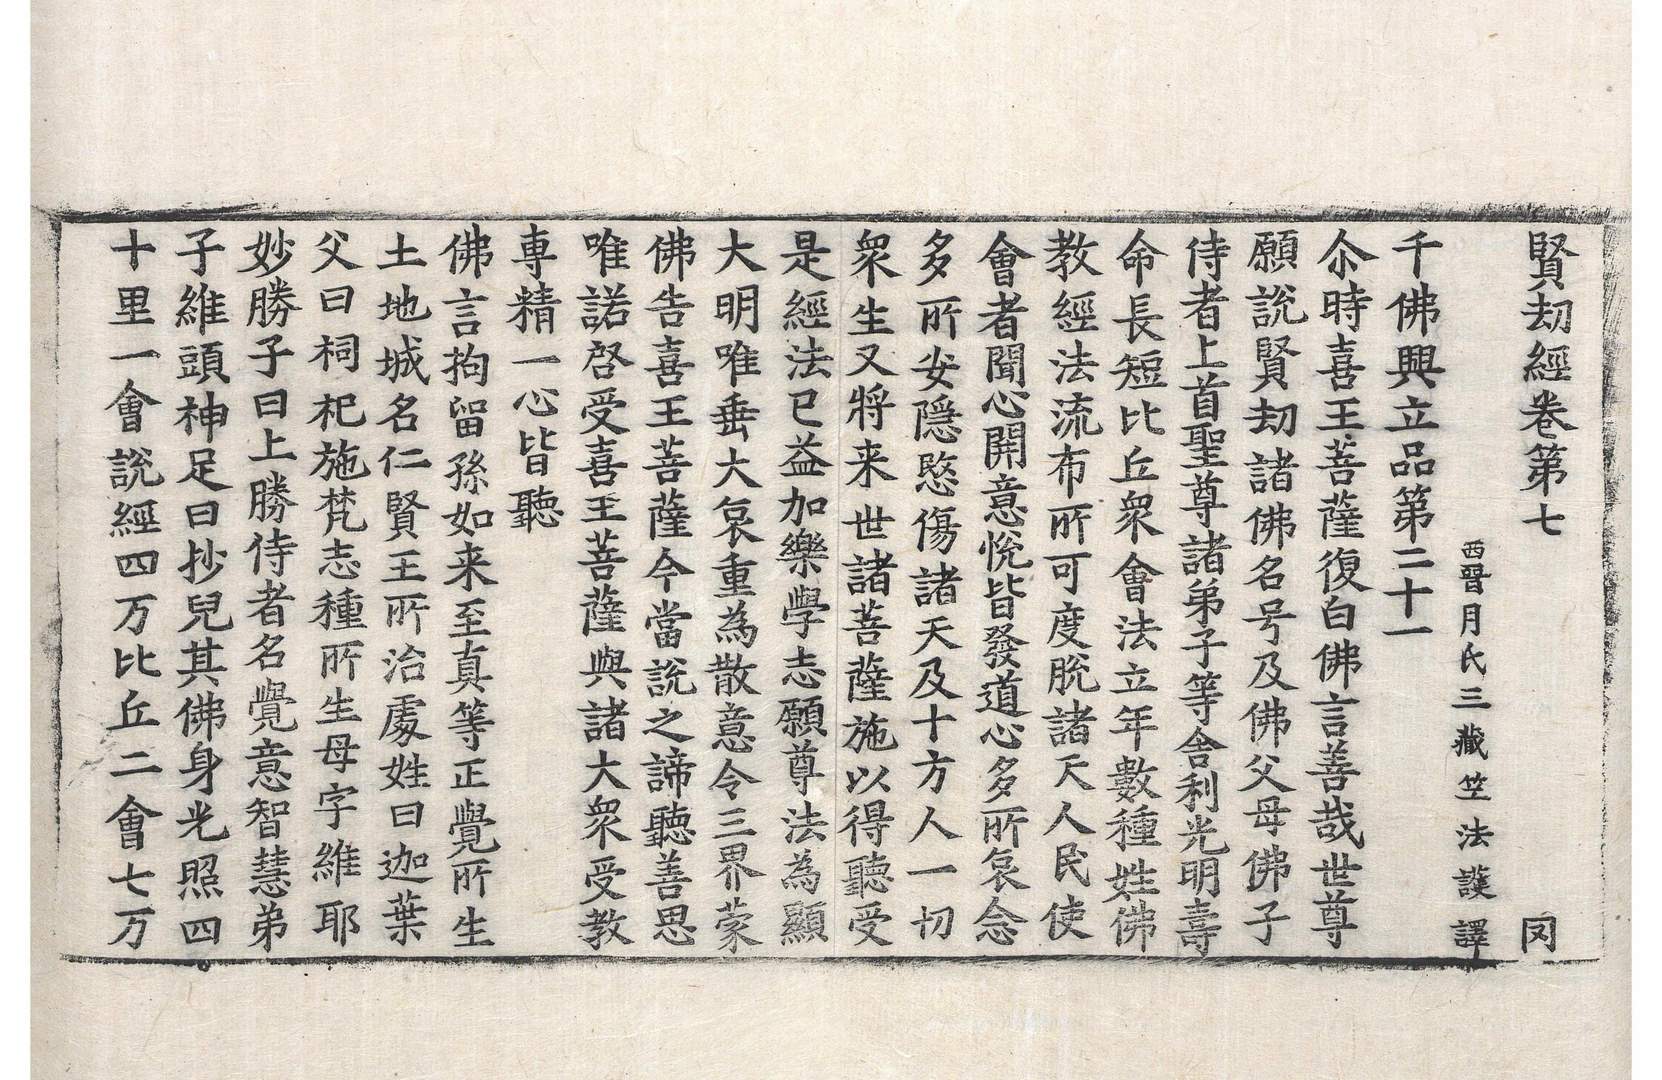 賢劫經卷第七 罔
西晉月氏三藏竺法護譯
千佛興立品第二十一
尒時喜王菩薩復白佛言善哉世尊
願說賢劫諸佛名号及佛父母佛子
侍者上首聖尊諸弟子等舍利光明壽
命長短比丘衆會法立年數種姓佛
教經法流布所可度脫諸天人民使
會者聞心開意悅皆發道心多所哀念
多所安隱愍傷諸天及十方人一切
衆生又將来世諸菩薩施以得聽受
是經法已益加樂學志願尊法為顯
大明唯垂大哀重為散意令三界蒙
佛告喜王菩薩今當說之諦聽善思
唯諾啓受喜王菩薩與諸大衆受教
專精一心皆聽
佛言拘留孫如来至真等正覺所生
土地城名仁賢王所治處姓曰迦葉
父曰祠祀施梵志種所生母字維耶
妙勝子曰上勝侍者名覺意智慧弟
子維頭神足曰抄兒其佛身光照四
十里一會說經四万比丘二會七万